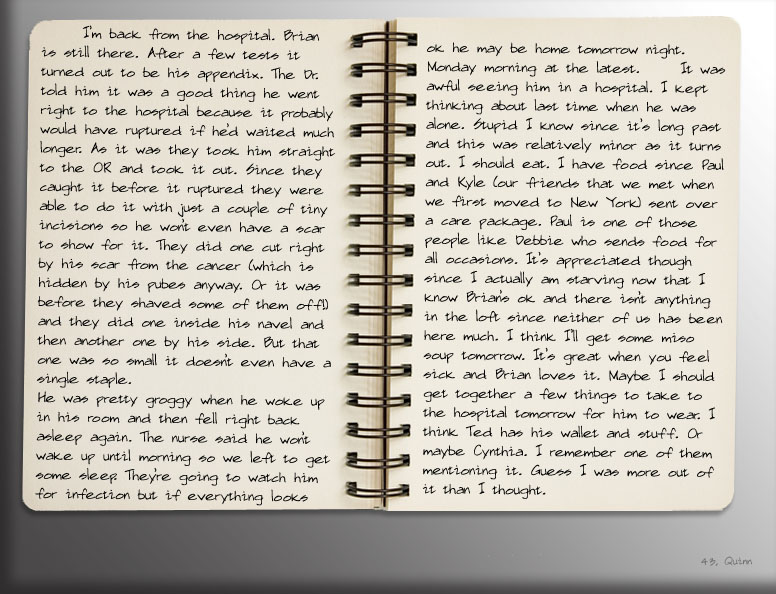 I'm back from the hospital. Brian
is still there. After a few tests it
turned out to be his appendix. The Dr.
told him it was a good thing he went
right to the hospital because it probably
would have ruptured if he'd waited much
longer. As it was they took him straight
to the OR and took it out. Since they
caught it before it ruptured they were
able to do it with just a couple of tiny
incisions so he won't even have a scar
to show for it. They did one cut right
by his scar from the cancer (which is
hidden by his pubes anyway. Or it was
before they shaved some of them off!)
and they did one inside his navel and
then another one by his side. But that
one was so small it doesn't even have a
single staple.
He was pretty groggy when he woke up
in his room and then fell right back
asleep again. The nurse said he won't
wake up until morning so we left to get
some sleep. They're going to watch him
for infection but if everything looks
ok he may be home tomorrow night.
Monday morning at the latest. It was
awful seeing him in a hospital. I kept
thinking about last time when he was
alone. Stupid I know since it's long past
and this was relatively minor as it turns
out. I should eat. I have food since Paul
and Kyle (our friends that we met when
we first moved to New York) sent over
a care package. Paul is one of those
people like Debbie who sends food for
all occasions. It's appreciated though
since I actually am starving now that I
know Brian's ok and there isn't anything
in the loft since neither of us has been
here much. I think I'll get some miso
soup tomorrow. It's great when you feel
sick and Brian loves it. Maybe I should
get together a few things to take to
the hospital tomorrow for him to wear. I
think Ted has his wallet and stuff. Or
maybe Cynthia. I remember one of them
mentioning it. Guess I was more out of
it than I thought.
43, Quinn